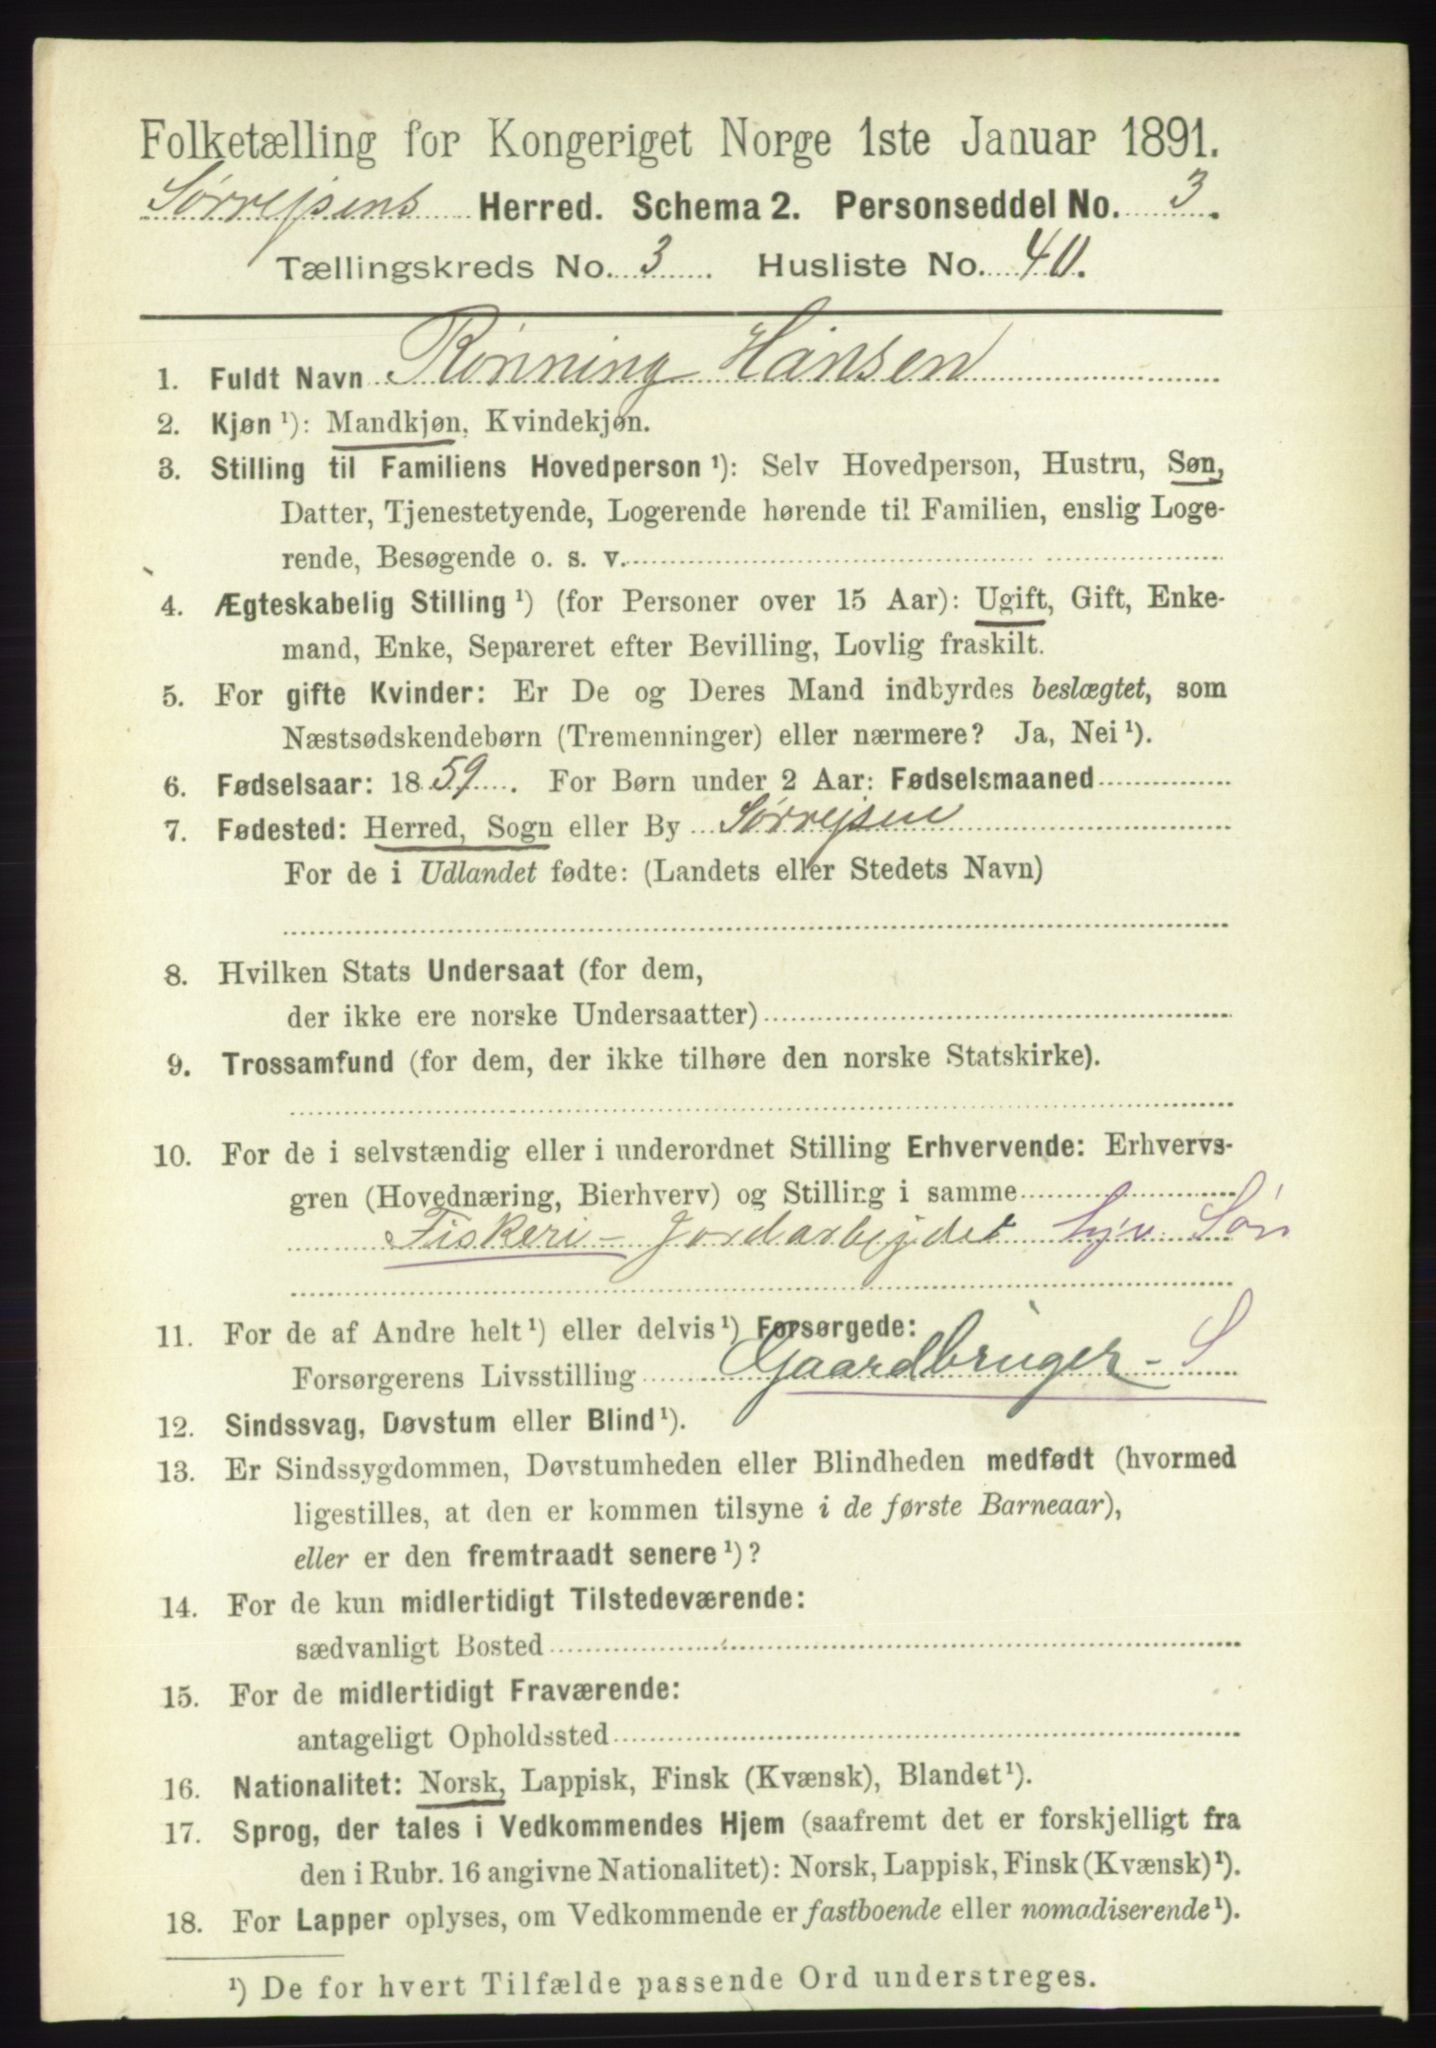 Folketælling for Kongeriget Norge 1ste Januar 1891.
Sørrejsens Herred. Schema 2. Personseddel No. 3.
Tællingskreds No. 3. Husliste No. 40.
1. Fuldt Navn Rønning Hansen
2. Kjøn ¹): Mandkjøn, Kvindekjøn.
3. Stilling til Familiens Hovedperson ¹): Selv Hovedperson, Hustru, Søn,
Datter, Tjenestetyende, Logerende hørende til Familien, enslig Loge-
rende, Besøgende o. s. v.
4. Ægteskabelig Stilling ¹) (for Personer over 15 Aar): Ugift, Gift, Enke-
mand, Enke, Separeret efter Bevilling, Lovlig fraskilt.
5. For gifte Kvinder: Er De og Deres Mand indbyrdes beslægtet, som
Næstsødskendebørn (Tremenninger) eller nærmere? Ja, Nei ¹).
6. Fødselsaar: 1859. For Børn under 2 Aar: Fødselsmaaned
7. Fødested: Herred, Sogn eller By Sørrejsen
For de i Udlandet fødte: (Landets eller Stedets Navn)
8. Hvilken Stats Undersaat (for dem,
der ikke ere norske Undersaatter)
9. Trossamfund (for dem, der ikke tilhøre den norske Statskirke).
10. For de i selvstændig eller i underordnet Stilling Erhvervende: Erhvervs-
gren (Hovednæring, Bierhverv) og Stilling i samme
Fiskeri - Jordarbejdet hjv Søn
11. For de af Andre helt ¹) eller delvis ¹) Forsørgede:
Forsørgerens Livsstilling Gaardbruger - S
12. Sindssvag, Døvstum eller Blind ¹).
13. Er Sindssygdommen, Døvstumheden eller Blindheden medfødt (hvormed
ligestilles, at den er kommen tilsyne i de første Barneaar),
eller er den fremtraadt senere ¹)?
14. For de kun midlertidigt Tilstedeværende:
sædvanligt Bosted
15. For de midlertidigt Fraværende:
antageligt Opholdssted
16. Nationalitet: Norsk, Lappisk, Finsk (Kvænsk), Blandet ¹).
17. Sprog, der tales i Vedkommendes Hjem (saafremt det er forskjelligt fra
den i Rubr. 16 angivne Nationalitet): Norsk, Lappisk, Finsk (Kvænsk) ¹).
18. For Lapper oplyses, om Vedkommende er fastboende eller nomadiserende ¹).
¹) De for hvert Tilfælde passende Ord understreges.